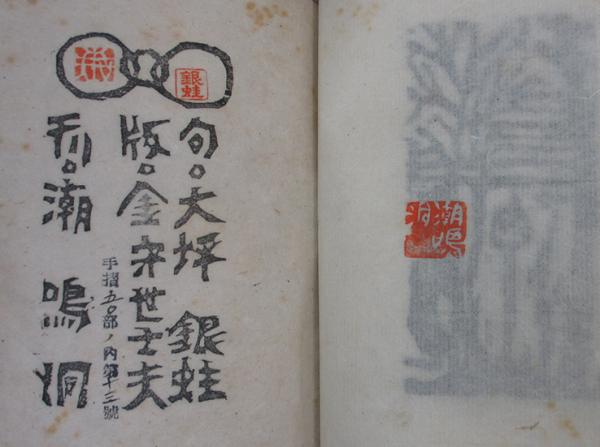 銀蛙
句。大坪 銀蛙
版。金守世士夫
手摺五〇部ノ内第十三號
刊。潮 鳴 洞